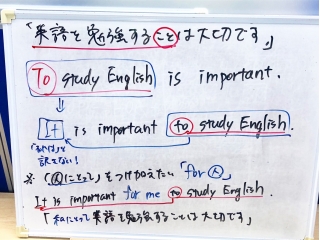 「英語を勉強することは大切です」
To study English is important.
It is important to study English.
「それは」と
訳さない!
※「Ⓐにとって」をつけ加えたい「for Ⓐ」
It is important for me to study English.
「私にとって英語を勉強することは大切です」